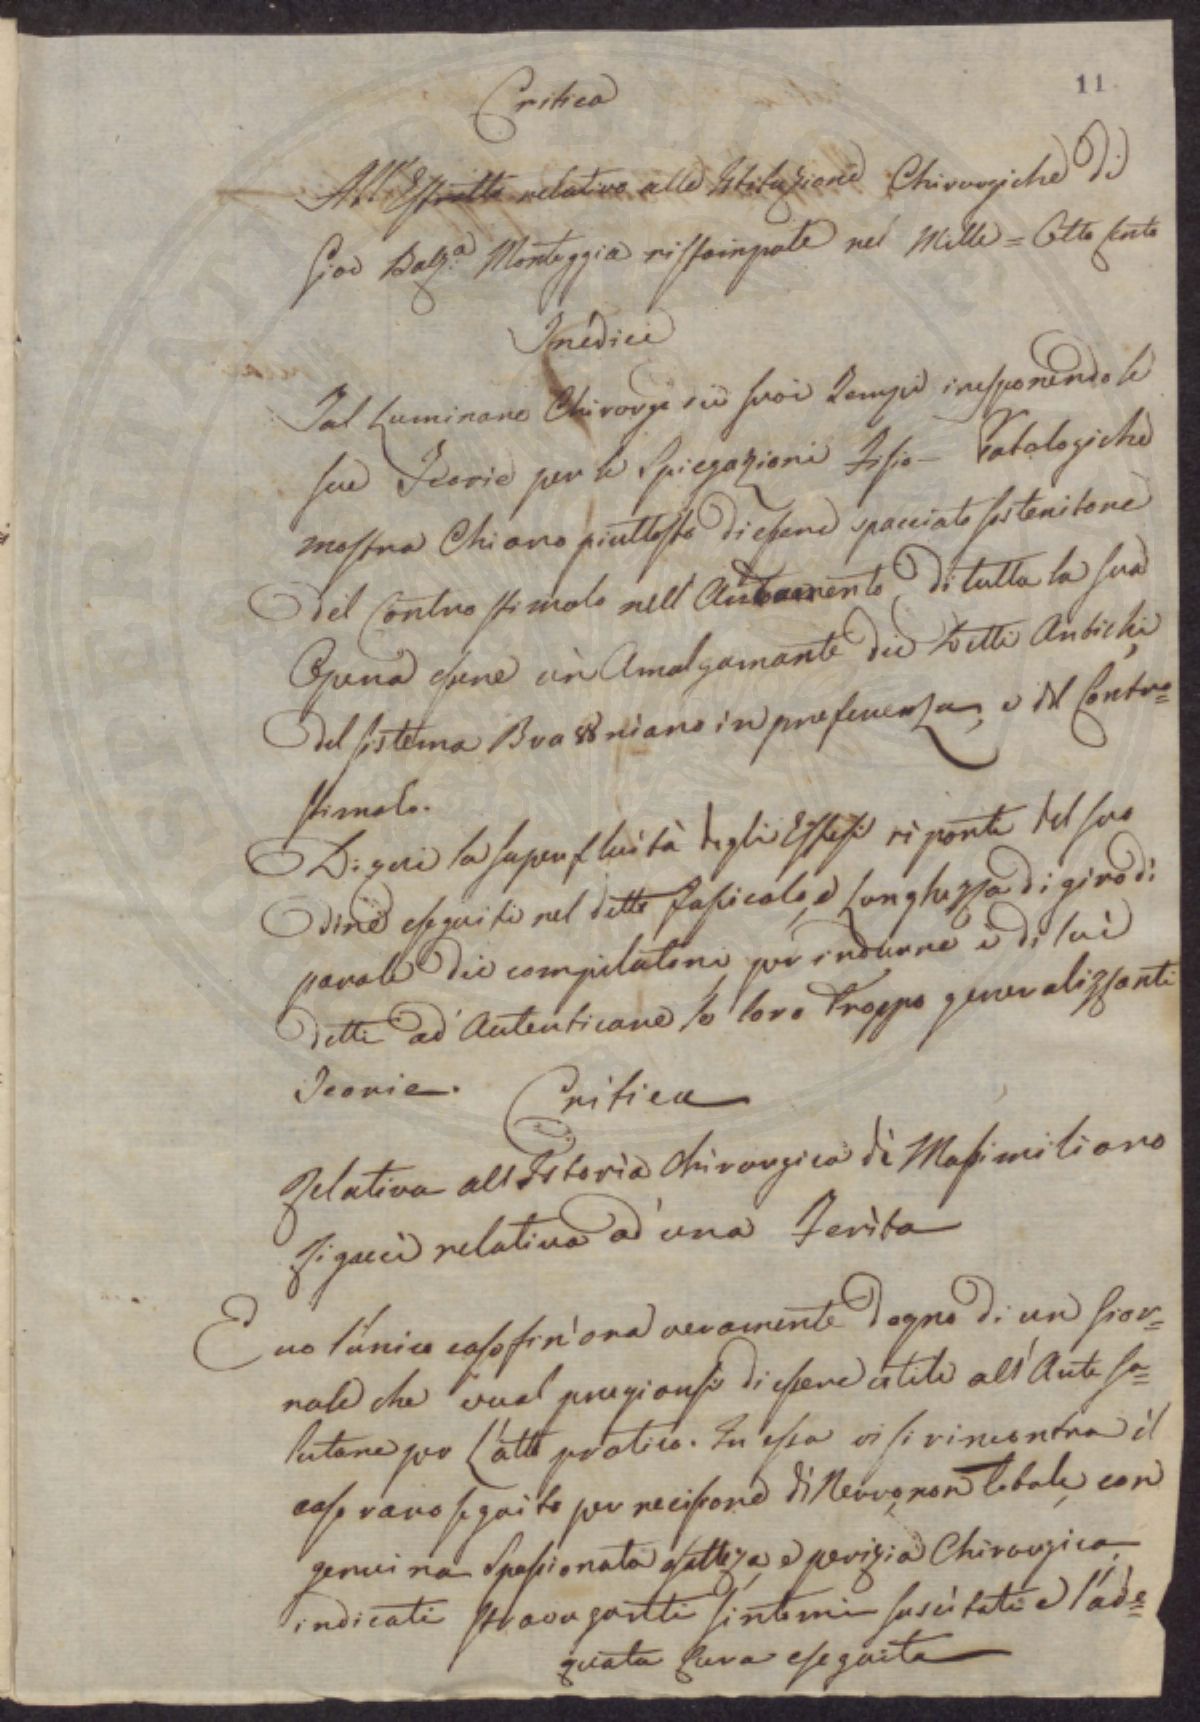 11
Critica
All' Estratto relativo alle Istituzione Chirurgiche di
Gioe Batta Monteggia ristampate nel Mille = Otto cento
Tredici
Tal Luminare Chirurgo sui suoi Tempi in esponendo le
sue Teorie per le Spiegazioni Fisio - Patologiche
mostra Chiaro piuttosto di essere spacciato sostenitore
del Contro stimolo nell' di tutta la sua
Opera essere un Amalgamante dei Detti Antichi,
del sistema Brawniano in preferenza, e del Contro=
stimolo.
Di qui la superfluità degli Estesi del suo
dire eseguiti nel detto fasicolo, e Lunghezza di giro di
parole dei compilatori per indurre i di lui
detti ad Autenticare le loro Troppo generalizzanti
Teorie. Critica
Relativa all Istoria Chirurgica di Massimiliano
Rigacci relativa ad una Ferita
E uo l'unico caso fin' ora veramente degno di un Gior=
nale che vual pregiarsi di essere utile all' Arte sa=
lutare per l'atto pratico. In essa vi si rincontra il
caso raro seguito per recisione di Nervo non totale, con
genuina Spassionata esattezza, e perizia Chirurgica
indicati stravaganti sintomi suscitati e l'ade=
quata Cura eseguita